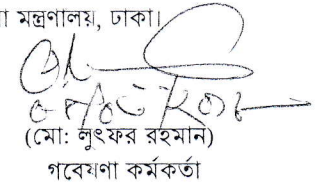 া মন্ত্রণালয়, ঢাকা।
(মো: লুৎফর রহমান)
গবেষণা কর্মকর্তা